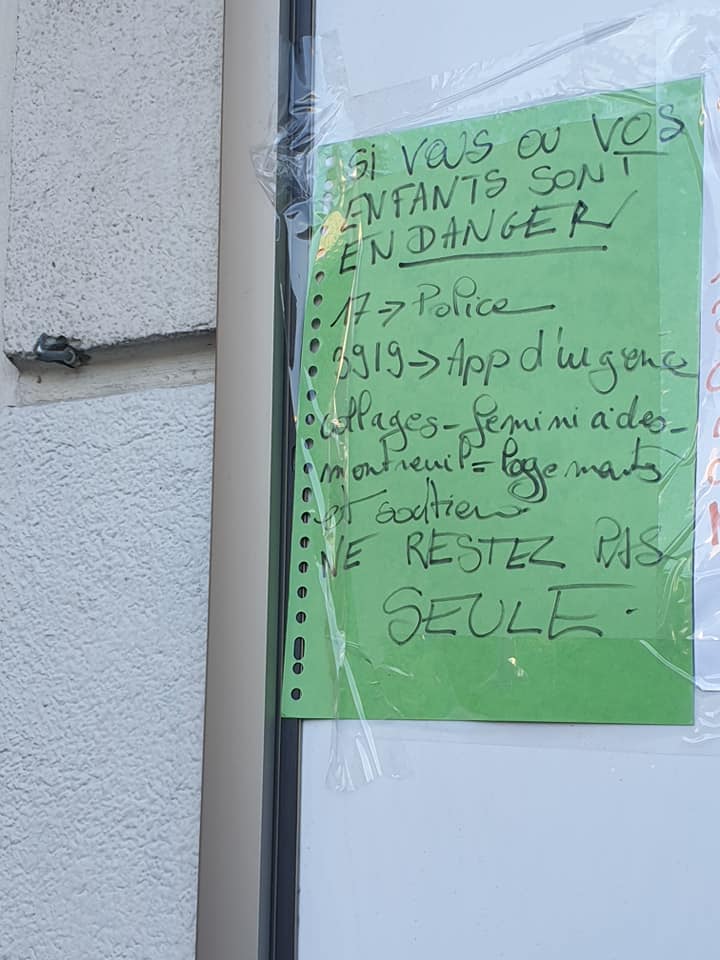 SI VOUS OU VOS
ENFANTS SONT
EN DANGER
17 → Police
3919 → App d'urgence
collages-feminicides-
montreuil = logements
et soutien
NE RESTEZ PAS
SEULE.